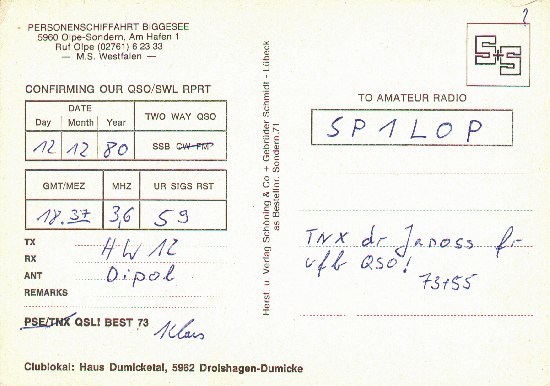 2
PERSONENSCHIFFAHRT BIGGESEE
5960 Olpe-Sondern, Am Hafen 1
Ruf Olpe (02761) 6 23 33
— M.S. Westfalen —
CONFIRMING OUR QSO/SWL RPRT
DATE
Day Month Year
TWO WAY QSO
12 12 80
SSB CW FM
GMT/MEZ MHZ UR SIGS RST
18.37 3,6 59
TX
RX
HW 12
ANT Dipol
REMARKS
PSE/TNX QSL! BEST 73
Klaus
Clublokal: Haus Dumicketal, 5962 Drolshagen-Dumicke
Herst. u. Verlag Schöning & Co + Gebrüder Schmidt - Lübeck
as Bestellnr. Sondern.71
S+S
TO AMATEUR RADIO
SP1LOP
TNX dr Janoss fr
vfb QSO!
73+55